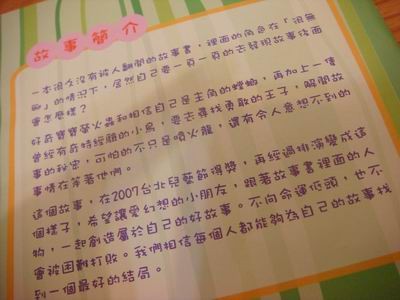 故事簡介
一本很久沒有被人翻閱的故事書，裡面的角色在「很無
聊」的情況下，居然自己要一頁一頁的去發現故事後面
會怎麼樣？
好奇寶寶螢火蟲和相信自己是主角的螳螂，再加上一隻
曾經有奇特經驗的小鳥，要去尋找勇敢的王子，解開故
事的秘密，可怕的不只是噴火龍，還有令人意想不到的
事情在等著他們。
這個故事，在2007台北兒藝節得獎，再經過排演變成這
個樣子，希望讓愛幻想的小朋友，跟著故事書裡面的人
物，一起創造屬於自己的好故事。不向命運低頭，也不
會被困難打敗。我們相信每個人都能夠為自己的故事找
到一個最好的結局。